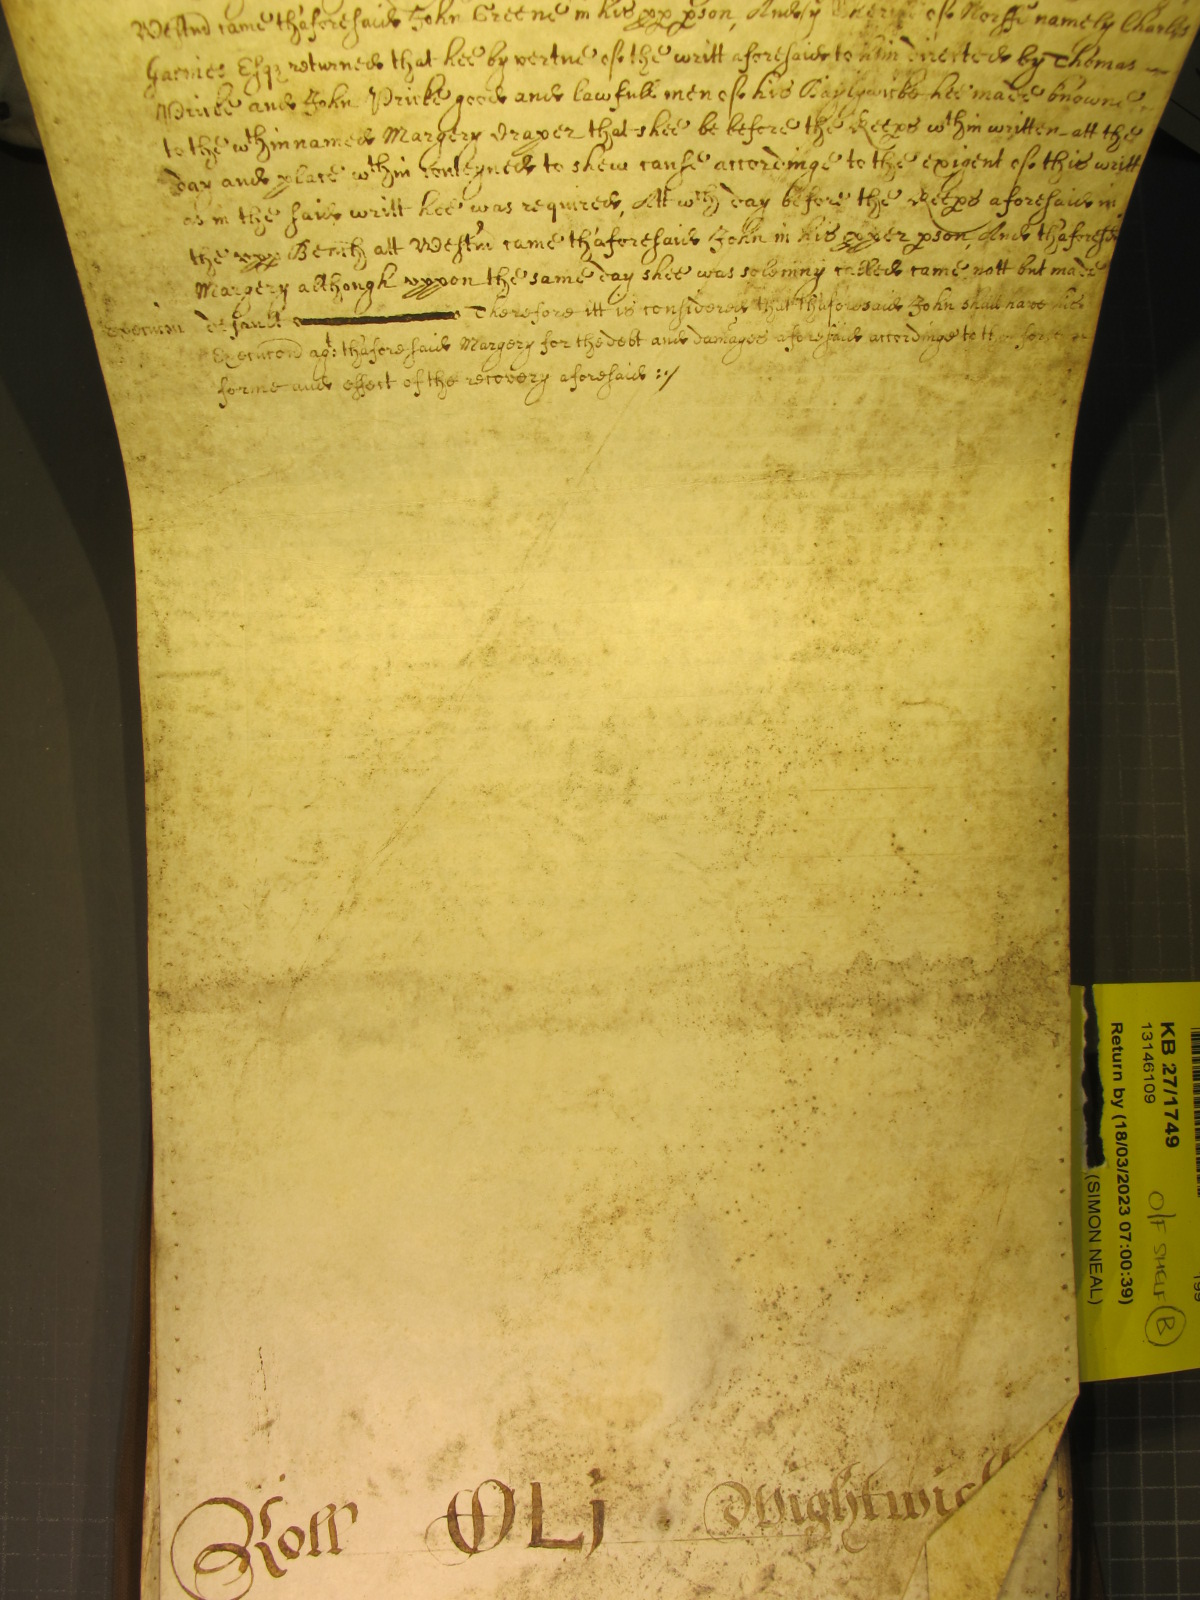 Westm̃ came thaforesaid John Greene in his ꝓp ꝑson, And ẏ Sheriff of Norff namely Charles
Garnies Esqr returned that hee by vertue of the writt aforesaid to him directed by Thomas
Pricke and John Pricke good and lawfull men of his Baylywicke hee made knowne
to the wthinnamed Margery Draper that shee be before the Keeps wthin written att the
day and place wthin conteyned to shew cause accordinge to the exigent of this writt
as in the said writt hee was required, Att wch day before the Keeps aforesaid in
the upp Bench att Westm̃ came thaforesaid John in his ꝓper ꝑson, And thaforesd
Margery although uppon the same day shee was solemny called came nott but made
default Therefore itt is considered that thaforesaid John shall have his
Execucon agt thaforesaid Margery for the debt and damages aforesaid accordinge to the force
forme and effect of the recovery aforesaid :/
Execucion
Roll CLj Wightwick
KB 27/1749
13146109
Return by (18/03/2023 07:00:39)
(SIMON NEAL)
O/F SHELF B